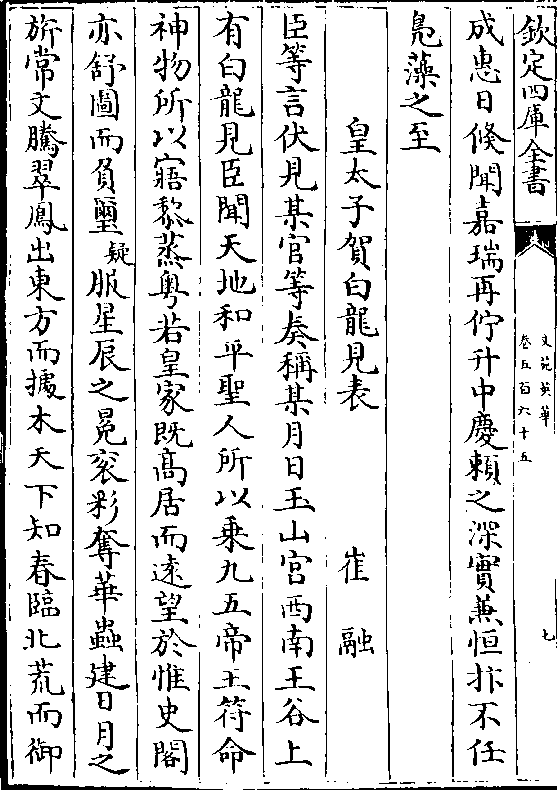 欽定四庫全書
文苑英華
卷五百六十五
七
成惠日倏聞嘉瑞再佇升中慶頼之深實兼恒抃不任
鳬藻之至
皇太子賀白龍見表 崔融
臣等言伏見某官等奏稱某月日玉山宫西南王谷上
有白龍見臣聞天地和平聖人所以乗九五帝王符命
神物所以寤黎蒸粤若皇家既髙居而逺望於惟史閣
亦舒圖而負璽疑服星辰之冕衮彩奪華蟲建日月之
旂常文騰翠鳳出東方而據木天下知春臨北荒而御